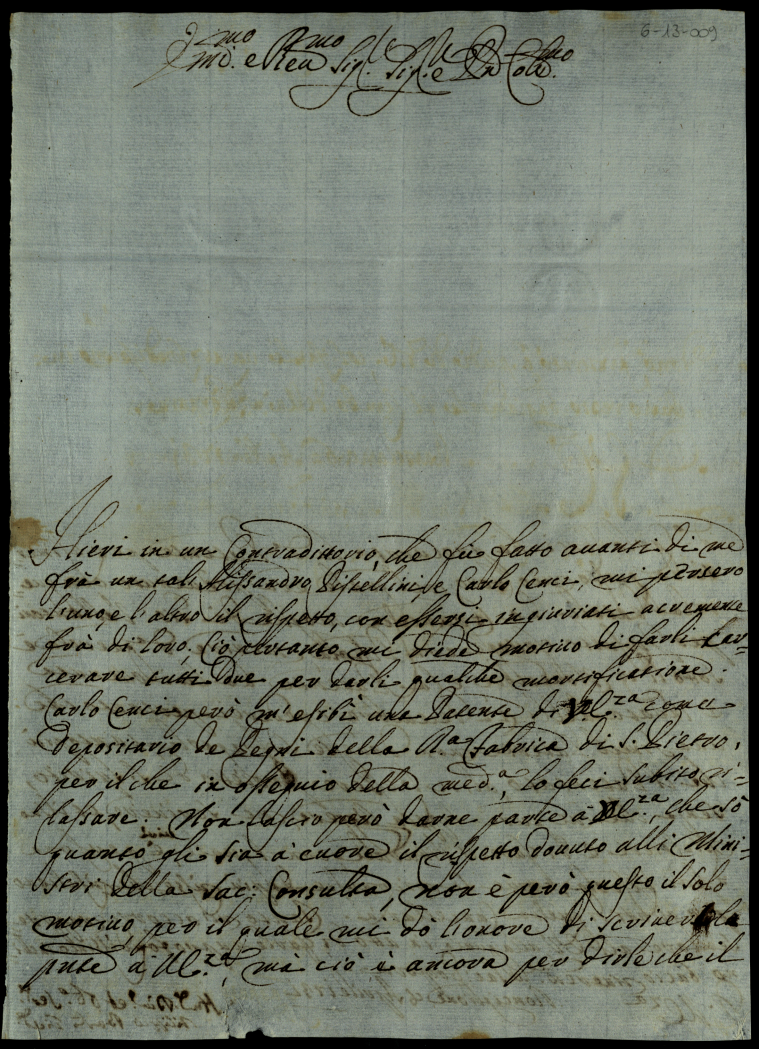 6-13-009
Ill.mo e Rev.mo Sig.r Sig.r e P.rn Col.mo
Hieri in un Contradittorio, che fù fatto avanti di me
frà un tal Alessandro Pistellini, e Carlo Cenci, mi persero
l'uno, e l'altro il rispetto, con essersi ingiuriati acremente
frà di loro. Ciò pertanto mi diede motivo di farli Car=
cerare tutti due per darli qualche mortificatione.
Carlo Cenci però m'esibì una Patente di V.S.Ill.za come
Depositario de Pegni della R.a Fabrica di S. Pietro,
per il che in ossequio della med.a, lo feci subito ri=
lassare. Non lascio però darne parte à V.S.Ill.za, che sò
quanto gli sia à cuore il rispetto dovuto alli Mini=
stri della Sac: Consulta, non è però questo il solo
motivo, per il quale mi dò l'onore di scrivere la
pnte à V.S.Ill.za, mà ciò è ancora per dirle che il